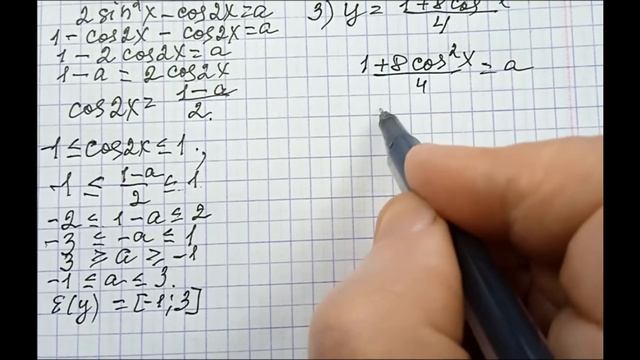 2 sin²x - cos2x = a
1 - cos2x - cos2x = a
1 - 2 cos2x = a
1 - a = 2 cos2x
cos2x = (1-a)/2.
-1 ≤ cos2x ≤ 1.,
-1 ≤ (1-a)/2 ≤ 1
-2 ≤ 1-a ≤ 2
-3 ≤ -a ≤ 1
3 ≥ a ≥ -1
-1 ≤ a ≤ 3.
E(y) = [-1; 3]
3) y = (1+8cos²x)/4
(1+8cos²x)/4 = a